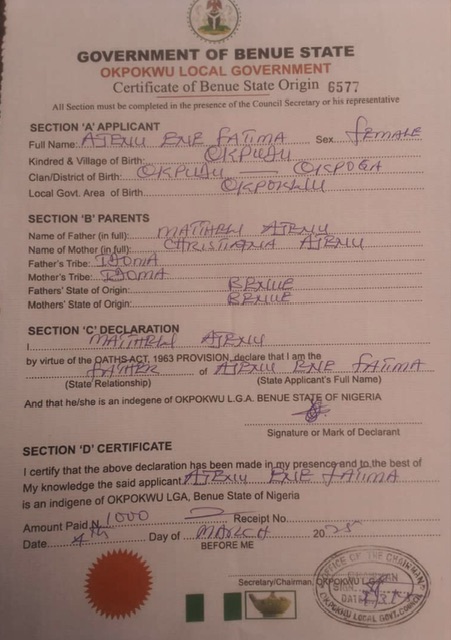 GOVERNMENT OF BENUE STATE
OKPOKWU LOCAL GOVERNMENT
Certificate of Benue State Origin 6577
All Section must be completed in the presence of the Council Secretary or his representative
SECTION 'A' APPLICANT
Full Name: AJENU ENE FATIMA Sex FEMALE
Kindred & Village of Birth: OKPUDU
Clan/District of Birth: OKPUDU — OKPOGA
Local Govt. Area of Birth OKPOKWU
SECTION 'B' PARENTS
Name of Father (in full): MATTHEW AJENU
Name of Mother (in full): CHRISTIANA AJENU
Father's Tribe: IDOMA
Mother's Tribe: IDOMA
Fathers' State of Origin: BENUE
Mothers' State of Origin: BENUE
SECTION 'C' DECLARATION
I MATTHEW AJENU
by virtue of the OATHS ACT, 1963 PROVISION, declare that I am the
FATHER of AJENU ENE FATIMA
(State Relationship) (State Applicant's Full Name)
And that he/she is an indegene of OKPOKWU L.G.A. BENUE STATE OF NIGERIA
Signature or Mark of Declarant
SECTION 'D' CERTIFICATE
I certify that the above declaration has been made in my presence and to the best of
My knowledge the said applicant AJENU ENE FATIMA
is an indigene of OKPOKWU LGA, Benue State of Nigeria
Amount Paid N 1000 Receipt No.
Date 4th Day of MARCH 2025
BEFORE ME
Secretary/Chairman, OKPOKWU L.G.
OFFICE OF THE CHAIRMAN
SIGN
DATE
OKPOKWU LOCAL GOVT. COUNCIL